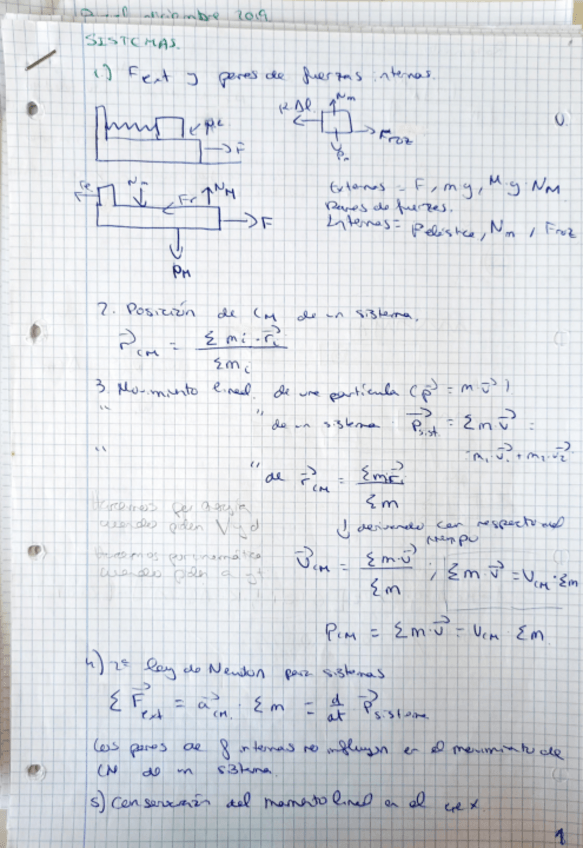 diciembre 2019
SISTEMAS.
1.) Fext y pares de fuerzas internas.
F
K·Δl Nm
Froz
Fe Nm Fr NM
F
PM
Externas = F, mg, M·g NM
Pares de fuerzas.
Internas = Pelástica, Nm, Froz
2. Posición de CM de un sistema.
r⃗CM = Σ mi · r⃗i / Σmi
3. Movimiento lineal de una partícula (p⃗ = m·v⃗)
" " de un sistema P⃗sist = Σm·v⃗ =
m1·v⃗1 + m2·v⃗2
" " de r⃗CM = Σm·r⃗i / Σm
Hacemos por energía
cuando piden V y d
↓ derivando con respecto al
tiempo
Hacemos por cinemática
cuando piden a y t
v⃗CM = Σm·v⃗ / Σm ; Σm·v⃗ = VCM·Σm
PCM = Σm·v⃗ = VCM · Σm
4) 2ª ley de Newton para sistemas
ΣF⃗ext = a⃗CM · Σm = d/dt P⃗sistema
Los pares de f internas no influyen en el movimiento de
CM de un sistema.
5) Conservación del momento lineal en el eje x.
1